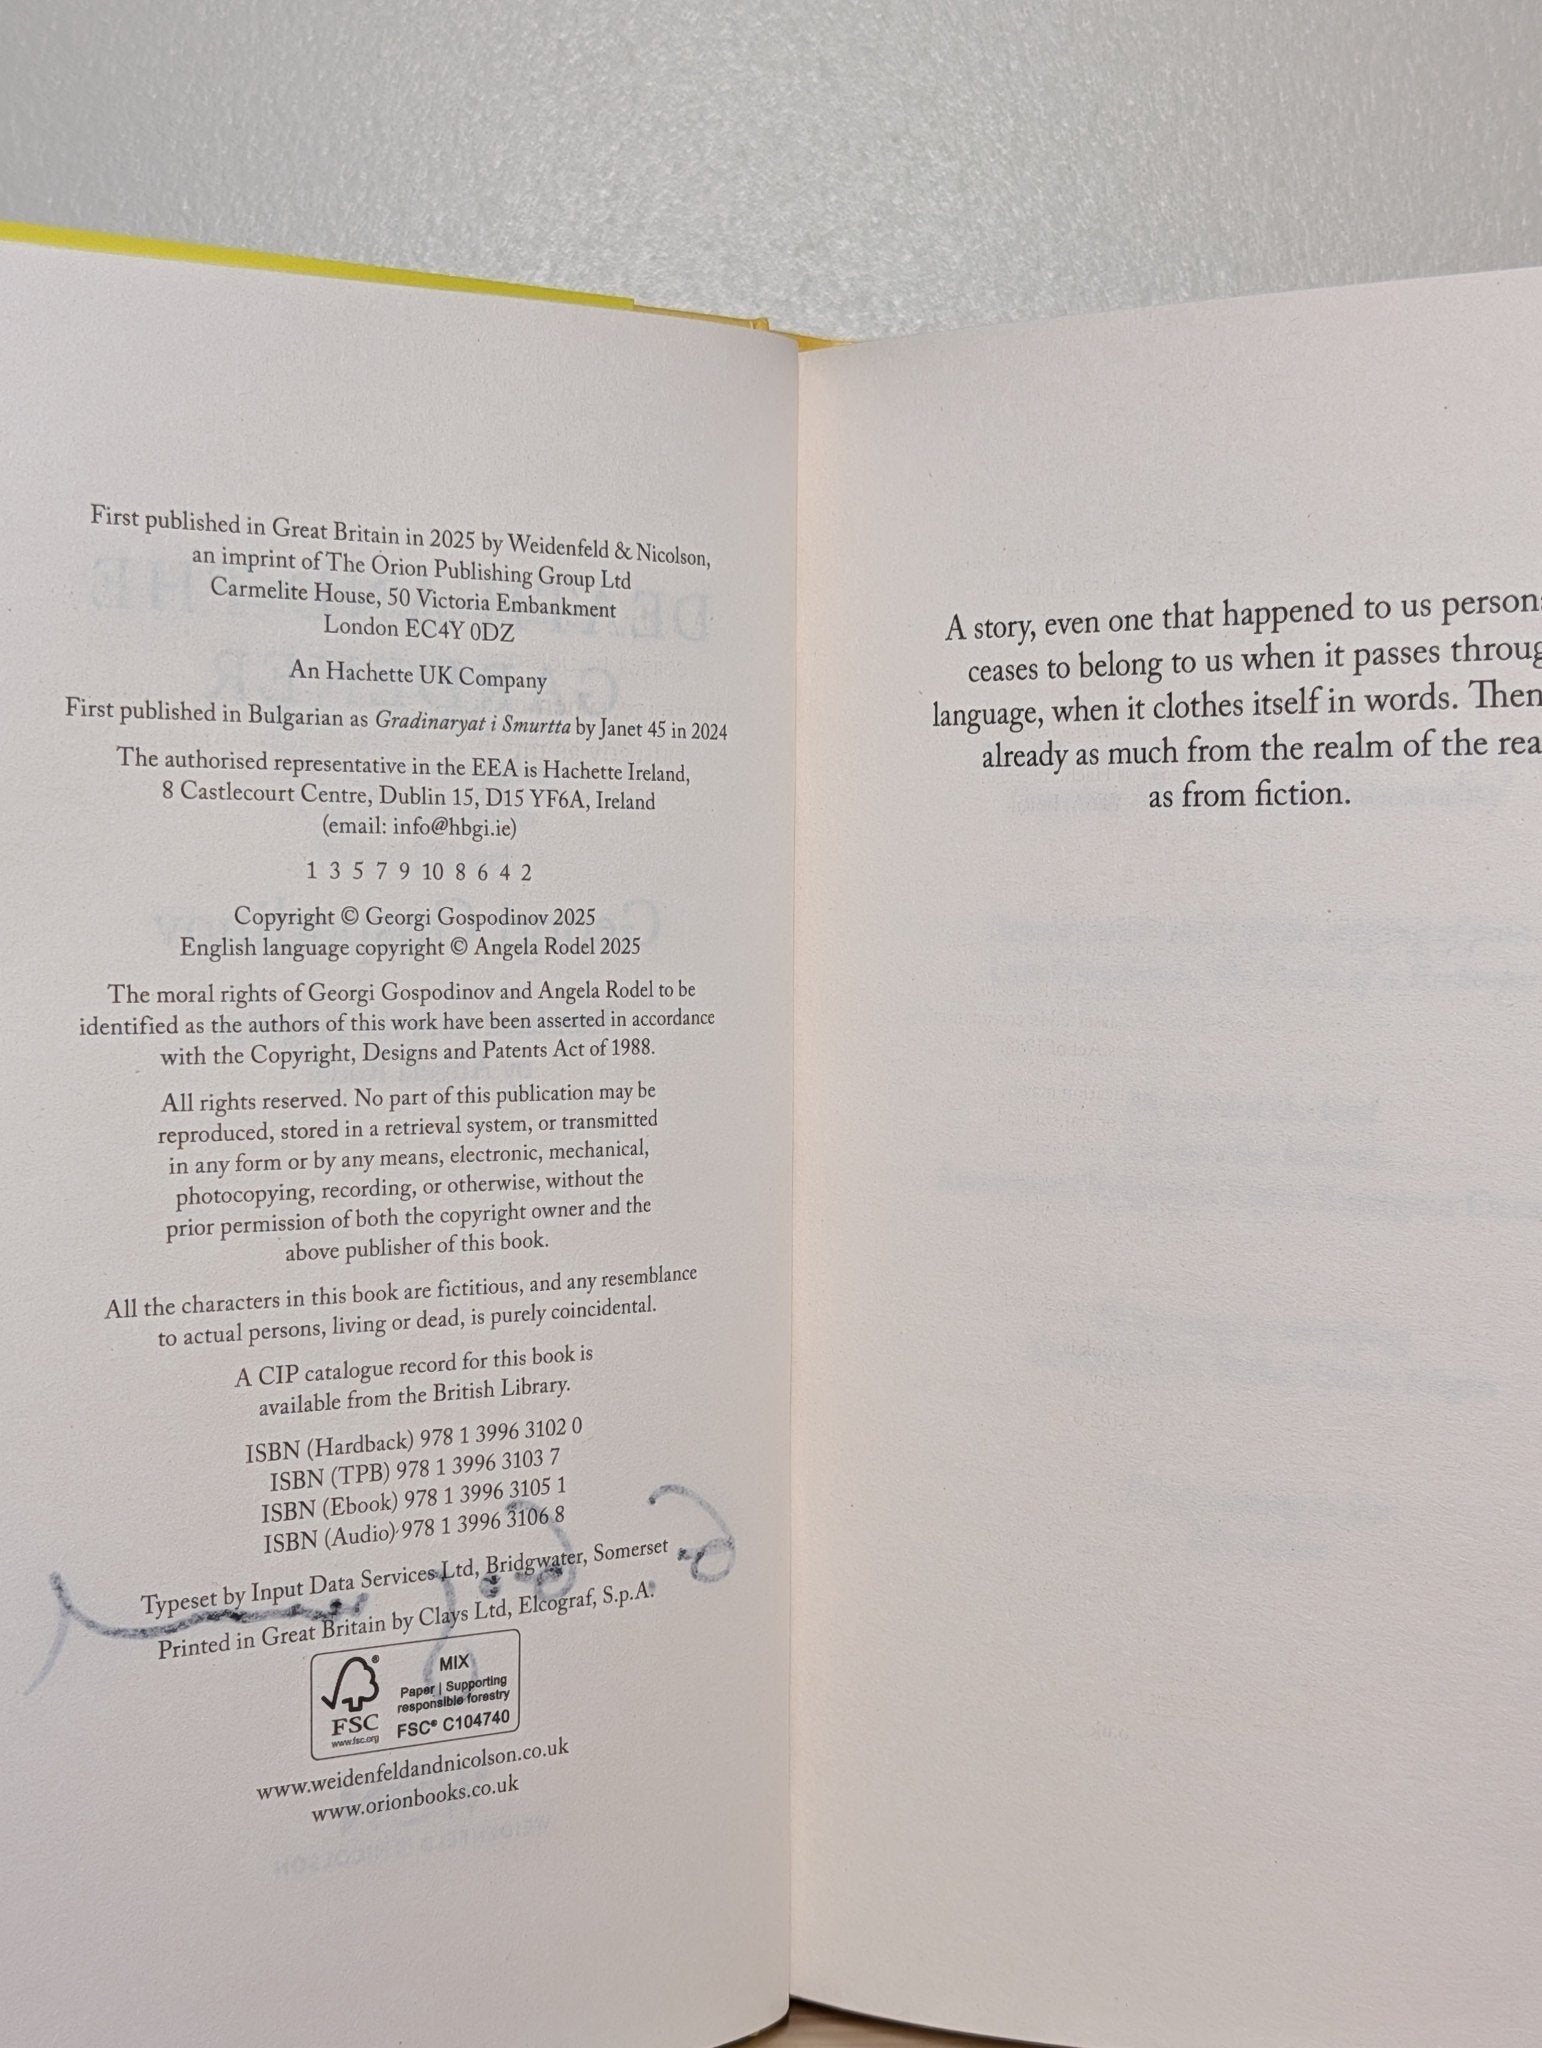 First published in Great Britain in 2025 by Weidenfeld & Nicolson,
an imprint of The Orion Publishing Group Ltd
Carmelite House, 50 Victoria Embankment
London EC4Y 0DZ
An Hachette UK Company
First published in Bulgarian as Gradinaryat i Smurtta by Janet 45 in 2024
The authorised representative in the EEA is Hachette Ireland,
8 Castlecourt Centre, Dublin 15, D15 YF6A, Ireland
(email: info@hbgi.ie)
1 3 5 7 9 10 8 6 4 2
Copyright © Georgi Gospodinov 2025
English language copyright © Angela Rodel 2025
The moral rights of Georgi Gospodinov and Angela Rodel to be
identified as the authors of this work have been asserted in accordance
with the Copyright, Designs and Patents Act of 1988.
All rights reserved. No part of this publication may be
reproduced, stored in a retrieval system, or transmitted
in any form or by any means, electronic, mechanical,
photocopying, recording, or otherwise, without the
prior permission of both the copyright owner and the
above publisher of this book.
All the characters in this book are fictitious, and any resemblance
to actual persons, living or dead, is purely coincidental.
A CIP catalogue record for this book is
available from the British Library.
ISBN (Hardback) 978 1 3996 3102 0
ISBN (TPB) 978 1 3996 3103 7
ISBN (Ebook) 978 1 3996 3105 1
ISBN (Audio) 978 1 3996 3106 8
Typeset by Input Data Services Ltd, Bridgwater, Somerset
Printed in Great Britain by Clays Ltd, Elcograf, S.p.A.
MIX
Paper | Supporting
responsible forestry
FSC® C104740
FSC
www.fsc.org
www.weidenfeldandnicolson.co.uk
www.orionbooks.co.uk
A story, even one that happened to us person
ceases to belong to us when it passes throug
language, when it clothes itself in words. Then
already as much from the realm of the rea
as from fiction.